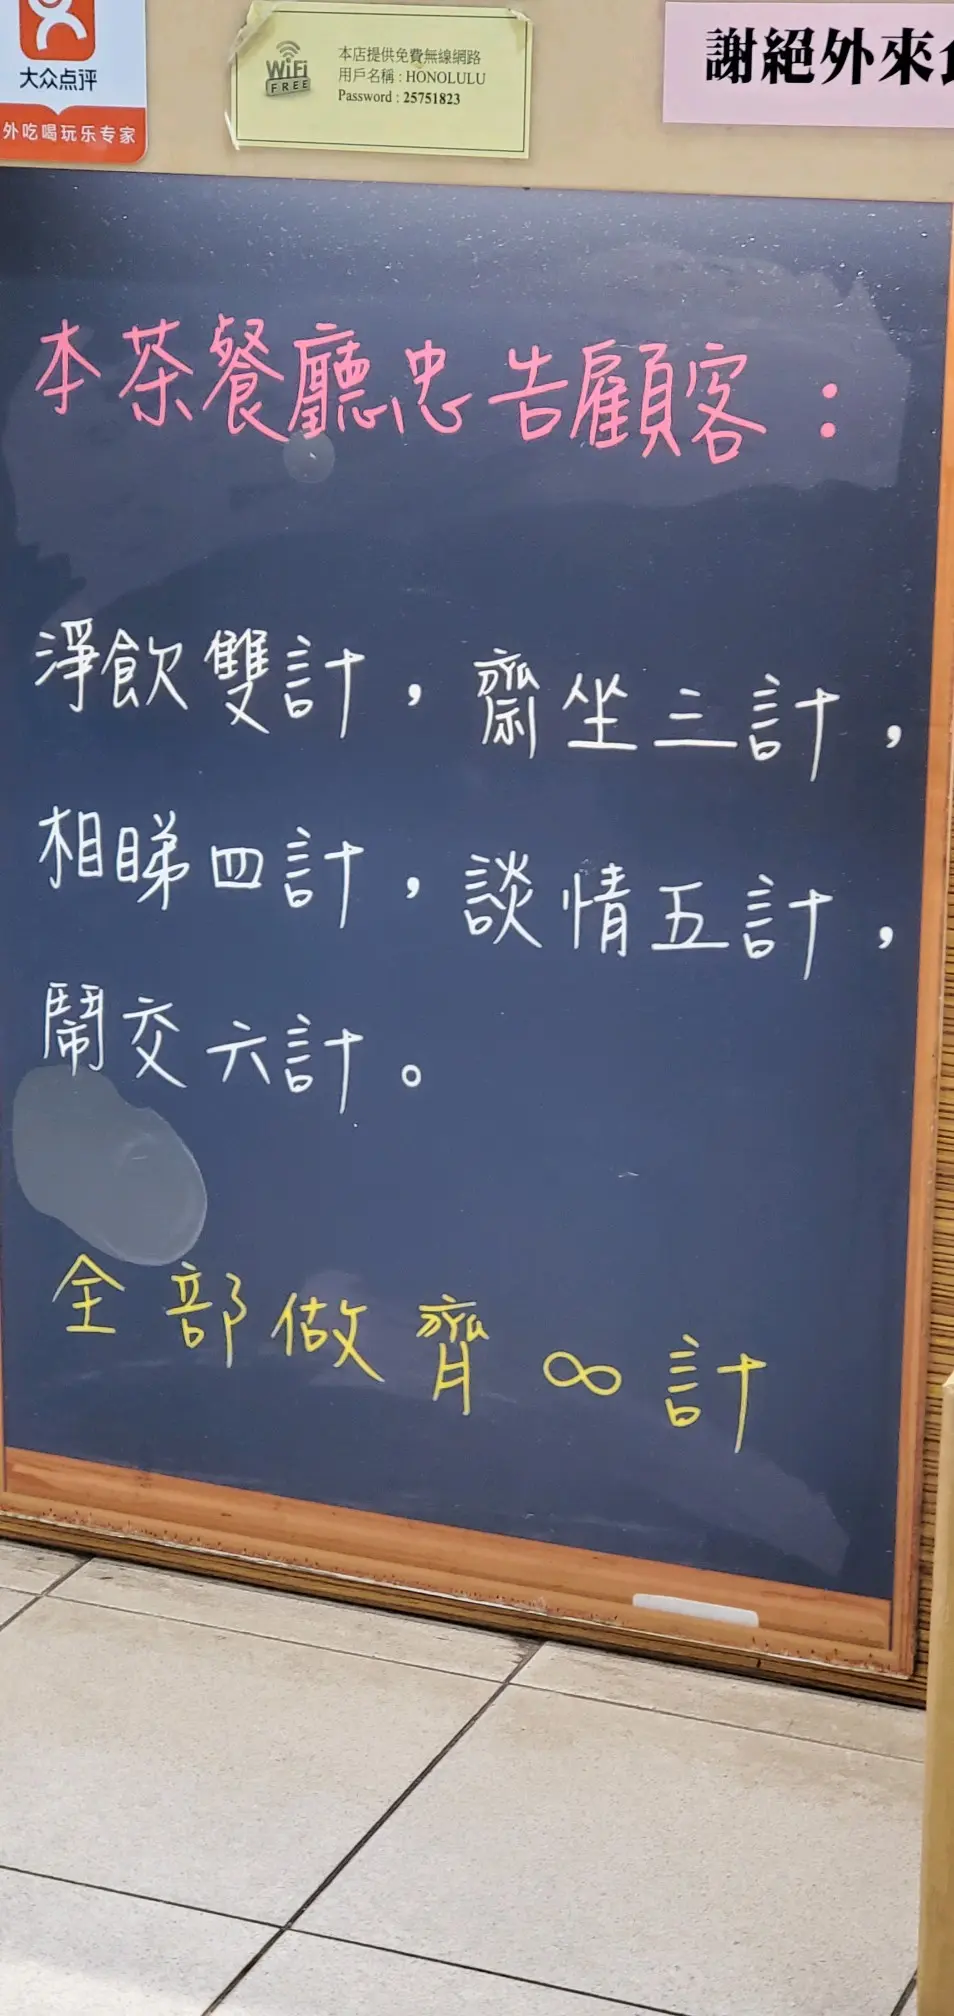 大众点评
外吃喝玩乐专家
WiFi
FREE
本店提供免費無線網路
用戶名稱 : HONOLULU
Password : 25751823
謝絕外來
本茶餐廳忠告顧客：
淨飲雙計，齋坐三計，
相睇四計，談情五計，
鬧交六計。
全部做齊∞計